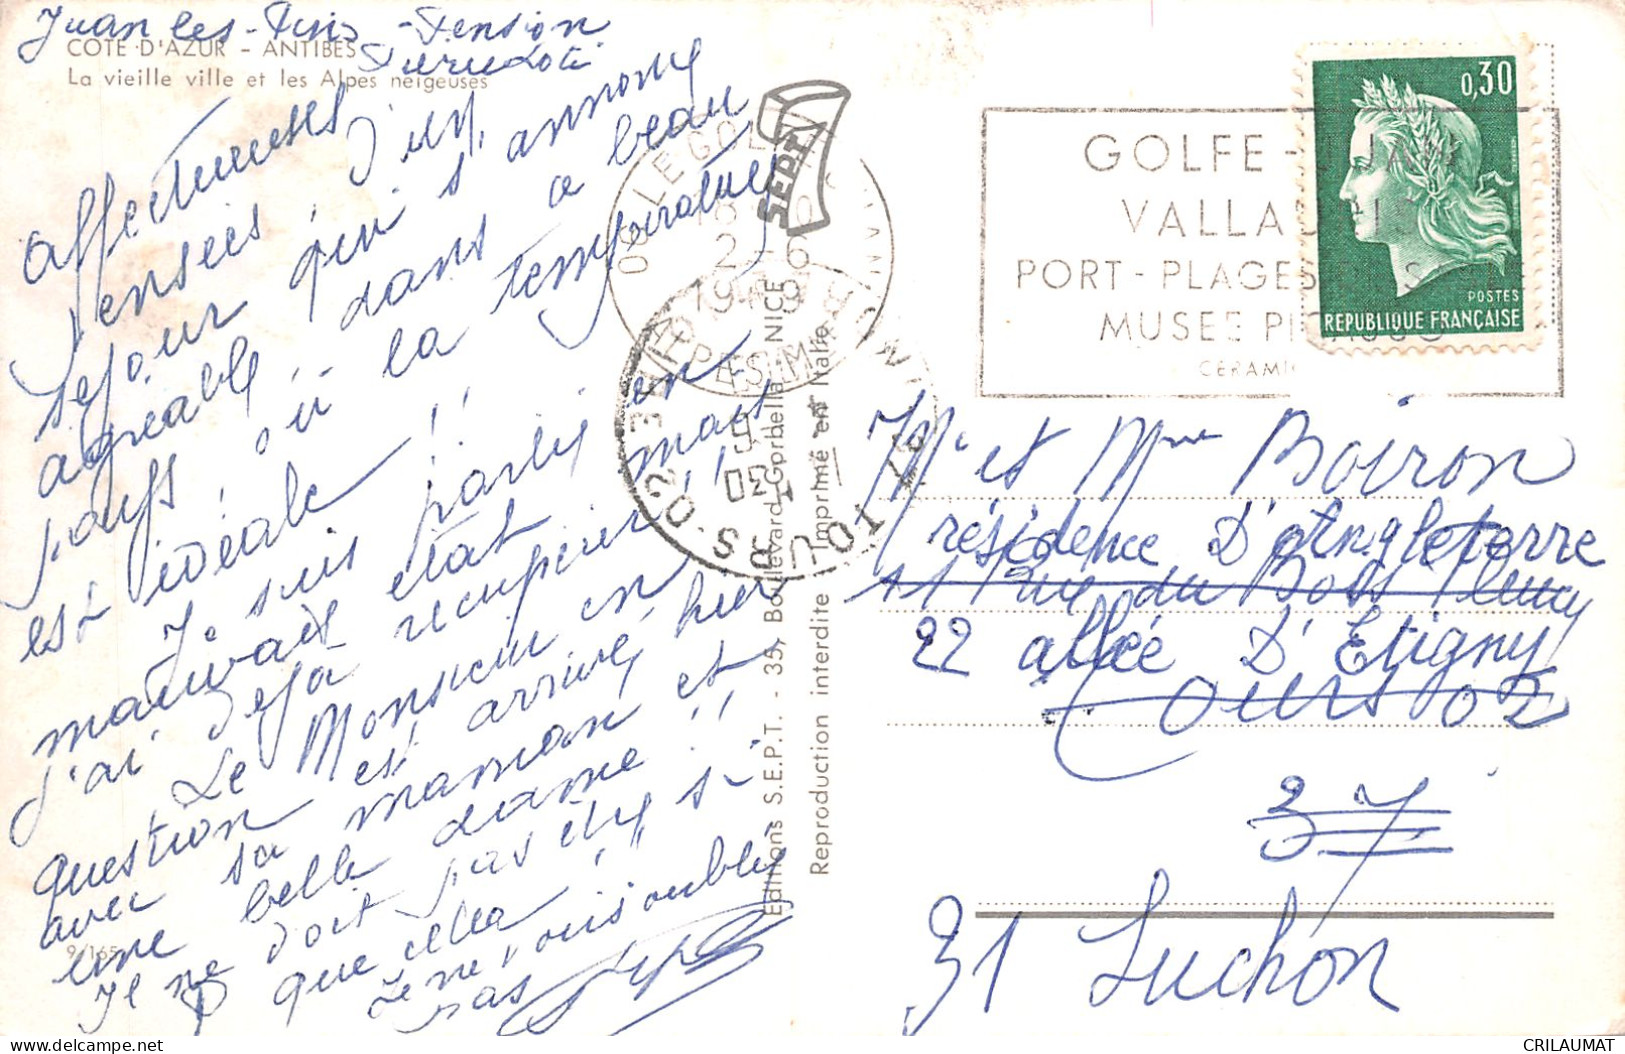 Juan les-Pins - Pension
COTE D'AZUR - ANTIBES
Pierre Loti
La vieille ville et les Alpes neigeuses
affectueuses
pensées d'un
séjour qui s'annonce
agréable dans ce beau
pays où la température
est idéale !!
Je suis partie en
mauvais état mais
j'ai déjà récupéré !!
Le Monsieur en
question est arrivé, hier
avec sa maman et
une belle dame !!
Il ne doit pas
que elle !!
Je ne vous oublie
pas
9/165
Editions S.E.P.T. - 35, Boulevard Gorbella - NICE
Reproduction interdite Imprimé en Italie
SEPT
06 LE GOLFE JUAN
2-6
1969
ALPES-MMES
37 TOURS-02
GOLFE-JUAN
VALLAURIS
PORT-PLAGES
MUSEE PICASSO
CERAMI
0,30
POSTES
REPUBLIQUE FRANÇAISE
Mr et Mme Boiron
résidence d'Angleterre
11 rue du Bois Fleury
22 allée d'Etigny
Tours 02
37
31 Luchon
CRILAUMAT